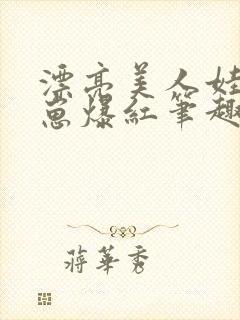 漂亮美人娃
崽爆紅筆趣
蔣華秀